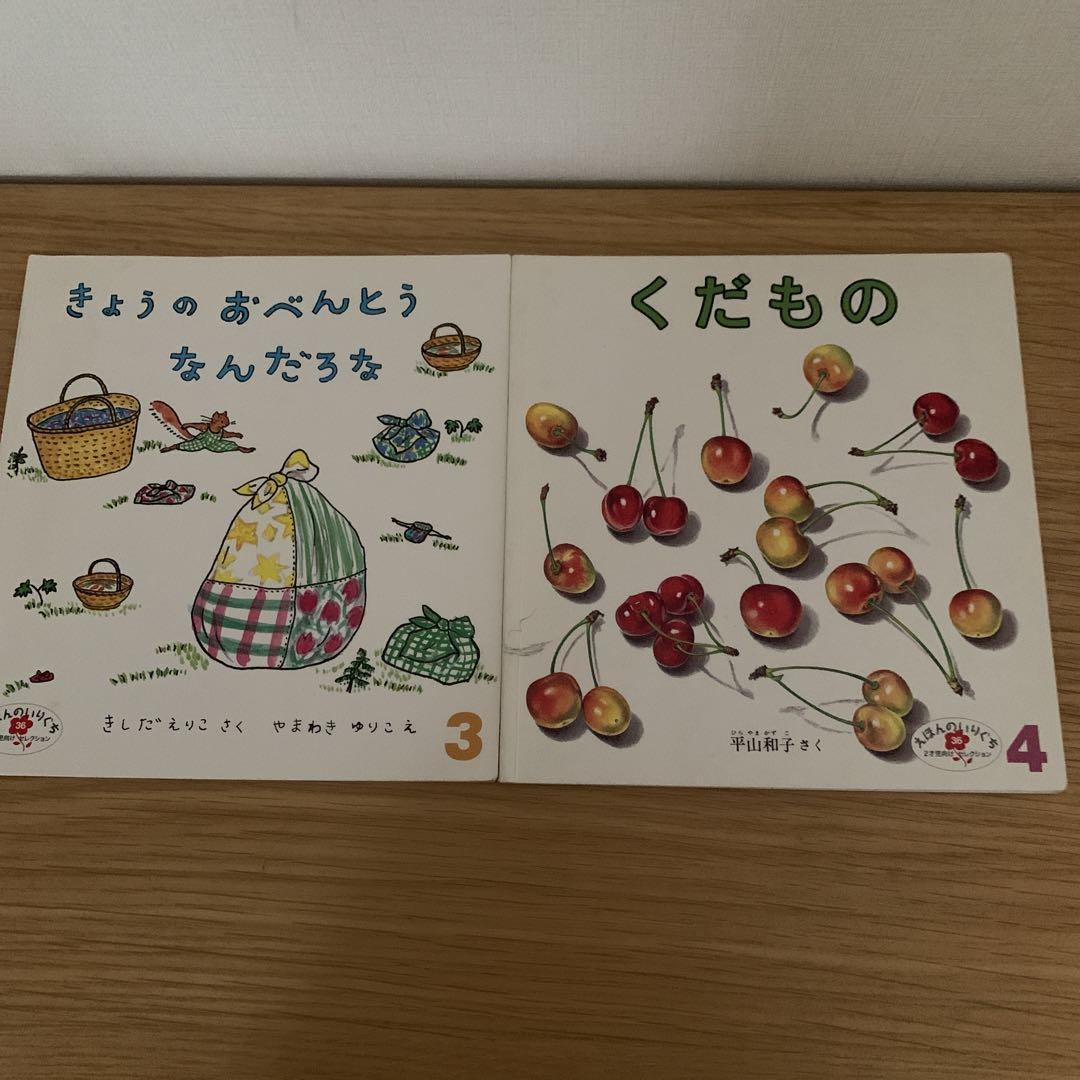 きょうの おべんとう
なんだろな
きしだ えりこ さく やまわき ゆりこ え
んのいりぐち
36
児向け セレクション
3
くだもの
ひらやまかずこ
平山和子 さく
えほんのいりぐち
36
2才児向け セレクション
4